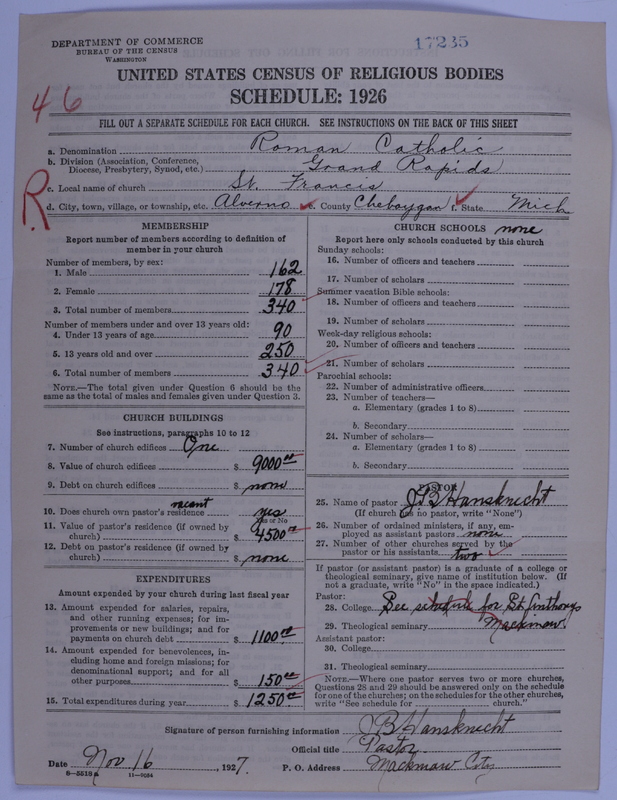 DEPARTMENT OF COMMERCE
BUREAU OF THE CENSUS
WASHINGTON
17235
UNITED STATES CENSUS OF RELIGIOUS BODIES
SCHEDULE: 1926
46
FILL OUT A SEPARATE SCHEDULE FOR EACH CHURCH. SEE INSTRUCTIONS ON THE BACK OF THIS SHEET
R
a. Denomination Roman Catholic
b. Division (Association, Conference, Diocese, Presbytery, Synod, etc.) Grand Rapids
c. Local name of church St. Francis
d. City, town, village, or township, etc. Alverno e. County Cheboygan f. State Mich
MEMBERSHIP
Report number of members according to definition of
member in your church
Number of members, by sex:
1. Male 162
2. Female 178
3. Total number of members 340
Number of members under and over 13 years old:
4. Under 13 years of age 90
5. 13 years old and over 250
6. Total number of members 340
NOTE.—The total given under Question 6 should be the
same as the total of males and females given under Question 3.
CHURCH BUILDINGS
See instructions, paragraphs 10 to 12
7. Number of church edifices One
8. Value of church edifices $ 9000.00
9. Debt on church edifices $ none
vacant
10. Does church own pastor's residence yes
Yes or No
11. Value of pastor's residence (if owned by
church) $ 4500.00
12. Debt on pastor's residence (if owned by
church) $ none
EXPENDITURES
Amount expended by your church during last fiscal year
13. Amount expended for salaries, repairs,
and other running expenses; for im-
provements or new buildings; and for
payments on church debt $ 1100.00
14. Amount expended for benevolences, in-
cluding home and foreign missions; for
denominational support; and for all
other purposes $ 150.00
15. Total expenditures during year $ 1250.00
CHURCH SCHOOLS none
Report here only schools conducted by this church
Sunday schools:
16. Number of officers and teachers
17. Number of scholars
Summer vacation Bible schools:
18. Number of officers and teachers
19. Number of scholars
Week-day religious schools:
20. Number of officers and teachers
21. Number of scholars
Parochial schools:
22. Number of administrative officers
23. Number of teachers—
a. Elementary (grades 1 to 8)
b. Secondary
24. Number of scholars—
a. Elementary (grades 1 to 8)
b. Secondary
PASTOR
25. Name of pastor J B Hansknecht
(If church has no pastor, write "None")
26. Number of ordained ministers, if any, em-
ployed as assistant pastors none
27. Number of other churches served by the
pastor or his assistants two
If pastor (or assistant pastor) is a graduate of a college or
theological seminary, give name of institution below. (If
not a graduate, write "No" in the space indicated.)
Pastor:
28. College See schedule for St Anthonys
29. Theological seminary Mackinaw
Assistant pastor:
30. College
31. Theological seminary
NOTE.—Where one pastor serves two or more churches,
Questions 28 and 29 should be answered only on the schedule
for one of the churches; on the schedules for the other churches,
write "See schedule for church."
Signature of person furnishing information J B Hansknecht
Official title Pastor
Date Nov 16, 1927. P. O. Address Mackinaw City
8-5518a 11-9084